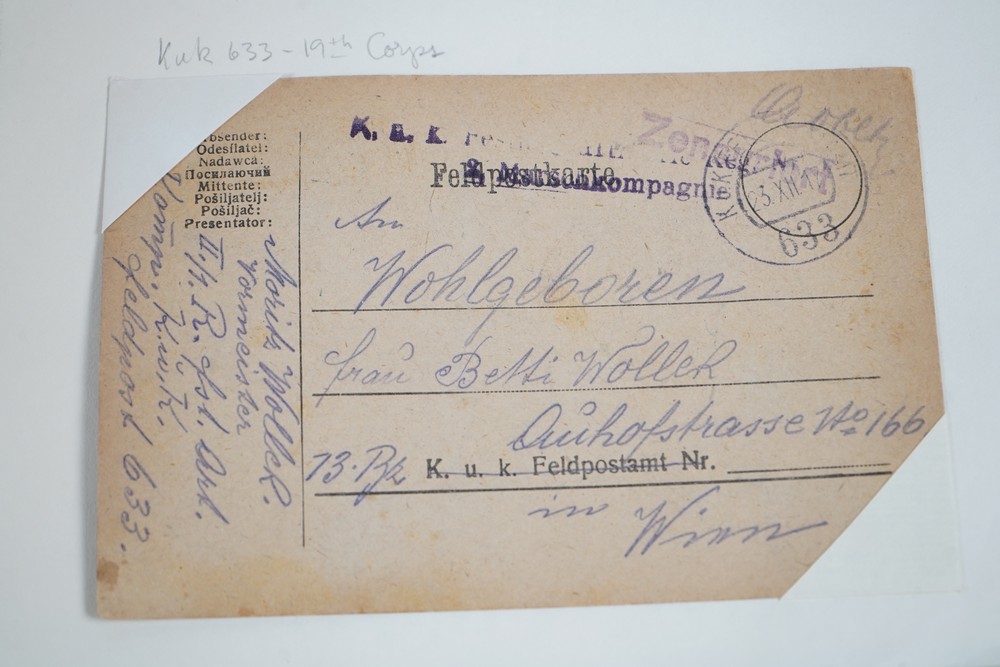 Kuk 633 - 19th Corps
Absender:
Odesílatel:
Nadawca:
Посилаючий
Mittente:
Pošiljatelj:
Pošiljač:
Presentator:
Moritz Wollek.
Vormeister
Feldpost 633.
K. u. k.
Zensuriert
Feldpostkarte
2. Marschkompagnie
23.XII.17
633
An
Wohlgeboren
Frau Betti Wollek
Auhofstrasse No 166
13. Bz
K. u. k. Feldpostamt Nr.
in Wien